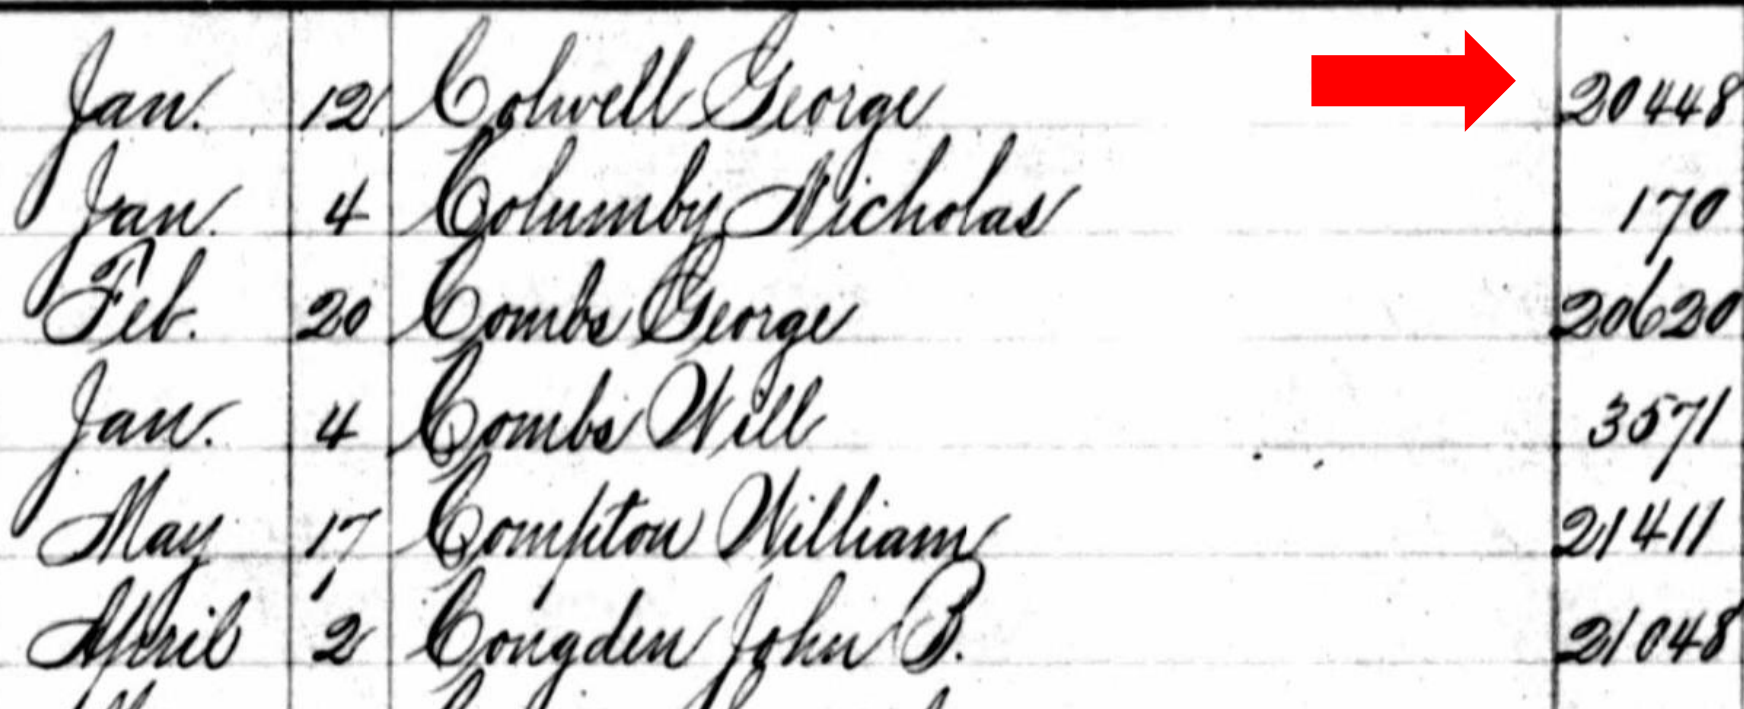 Jan. 12 Colwell George 20448
Jan. 4 Columby Nicholas 170
Feb. 20 Combs George 20620
Jan. 4 Combs Will 3571
May 17 Compton William 21411
April 2 Congden John B. 21048